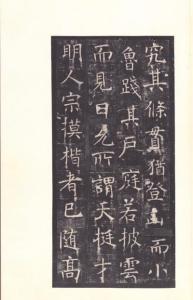 究其條貫猶登山而小
魯踐其户庭若披雲
而見日允所謂天挺才
明人宗摸楷者已隨髙